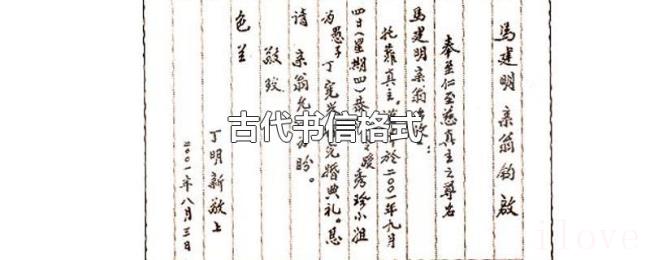 馬建明 亲翁钧啟
奉至仁至慈真主之尊名
馬建明亲翁
托靠真主 於二〇〇一年九月
四日(星期四)恭 爱秀珍小姐
为愚子丁宽兴 完婚典礼。恳
请 亲翁允 为盼。
敬致
色兰
丁明新敬上
二〇〇一年八月三日
古代书信格式
ilove